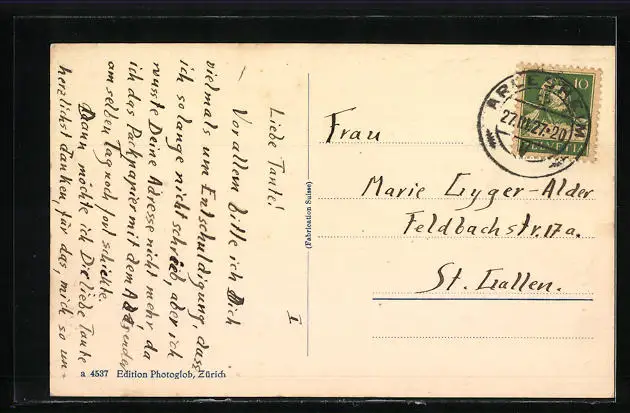 Liebe Tante!
Vor allem bitte ich Dich
vielmals um Entschuldigung, dass
ich so lange nicht schrieb, aber ich
wusste Deine Adresse nicht mehr, da
ich das Packpapier mit dem Absender
am selben Tag noch fort schickte.
Dann möchte ich Dir liebe Tante
herzlichst danken, für das, mich so un-
I
(Fabrication Suisse)
a 4537 Edition Photoglob, Zürich
10
HELVETIA
27.
27-20
Frau
Marie Gyger-Alder
Feldbachstr. 17a.
St. Gallen.